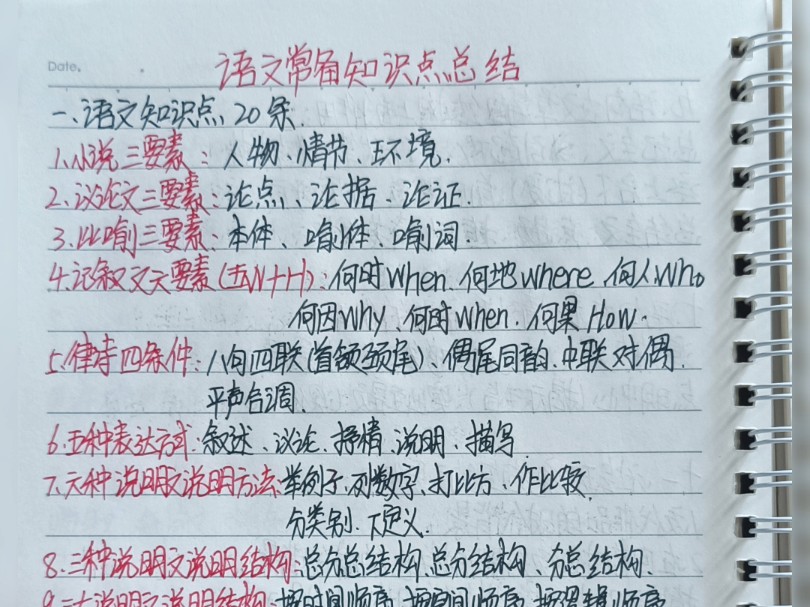 Date.
语文常备知识点总结
一、语文知识点 20条
1.小说三要素：人物、情节、环境.
2.议论文三要素：论点、论据、论证.
3.比喻三要素：本体、喻体、喻词.
4.记叙文六要素(五W+H)：何时when.何地where.何人Who
何因why、何时when.何果How.
5.律诗四条件：八句四联(首颔颈尾)、偶尾同韵.中联对偶.
平声合调.
6.五种表达方式.叙述、议论、抒情.说明、描写
7.六种说明文说明方法:举例子.列数字、打比方、作比较.
分类别.下定义.
8.三种说明文说明结构:总分总结构.总分结构、分总结构.
9.三大说明文说明结构:按时间顺序.按空间顺序.按逻辑顺序